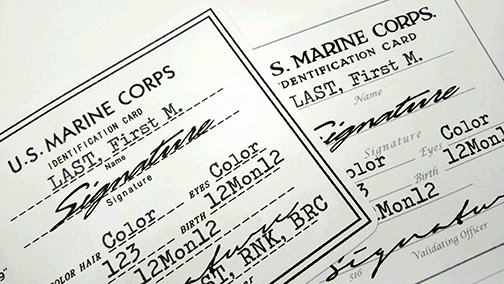 U.S. MARINE CORPS
IDENTIFICATION CARD
LAST, First M.
Name
Signature
Signature
COLOR HAIR Color EYES Color
123 BIRTH 12Mon12
12Mon12
ST, RNK, BRC
9"
S. MARINE CORPS.
DENTIFICATION CARD
LAST, First M.
Name
Signature
Signature
olor Eyes Color
123 Birth 12Mon12
Mon12
signatur
516 Validating Officer